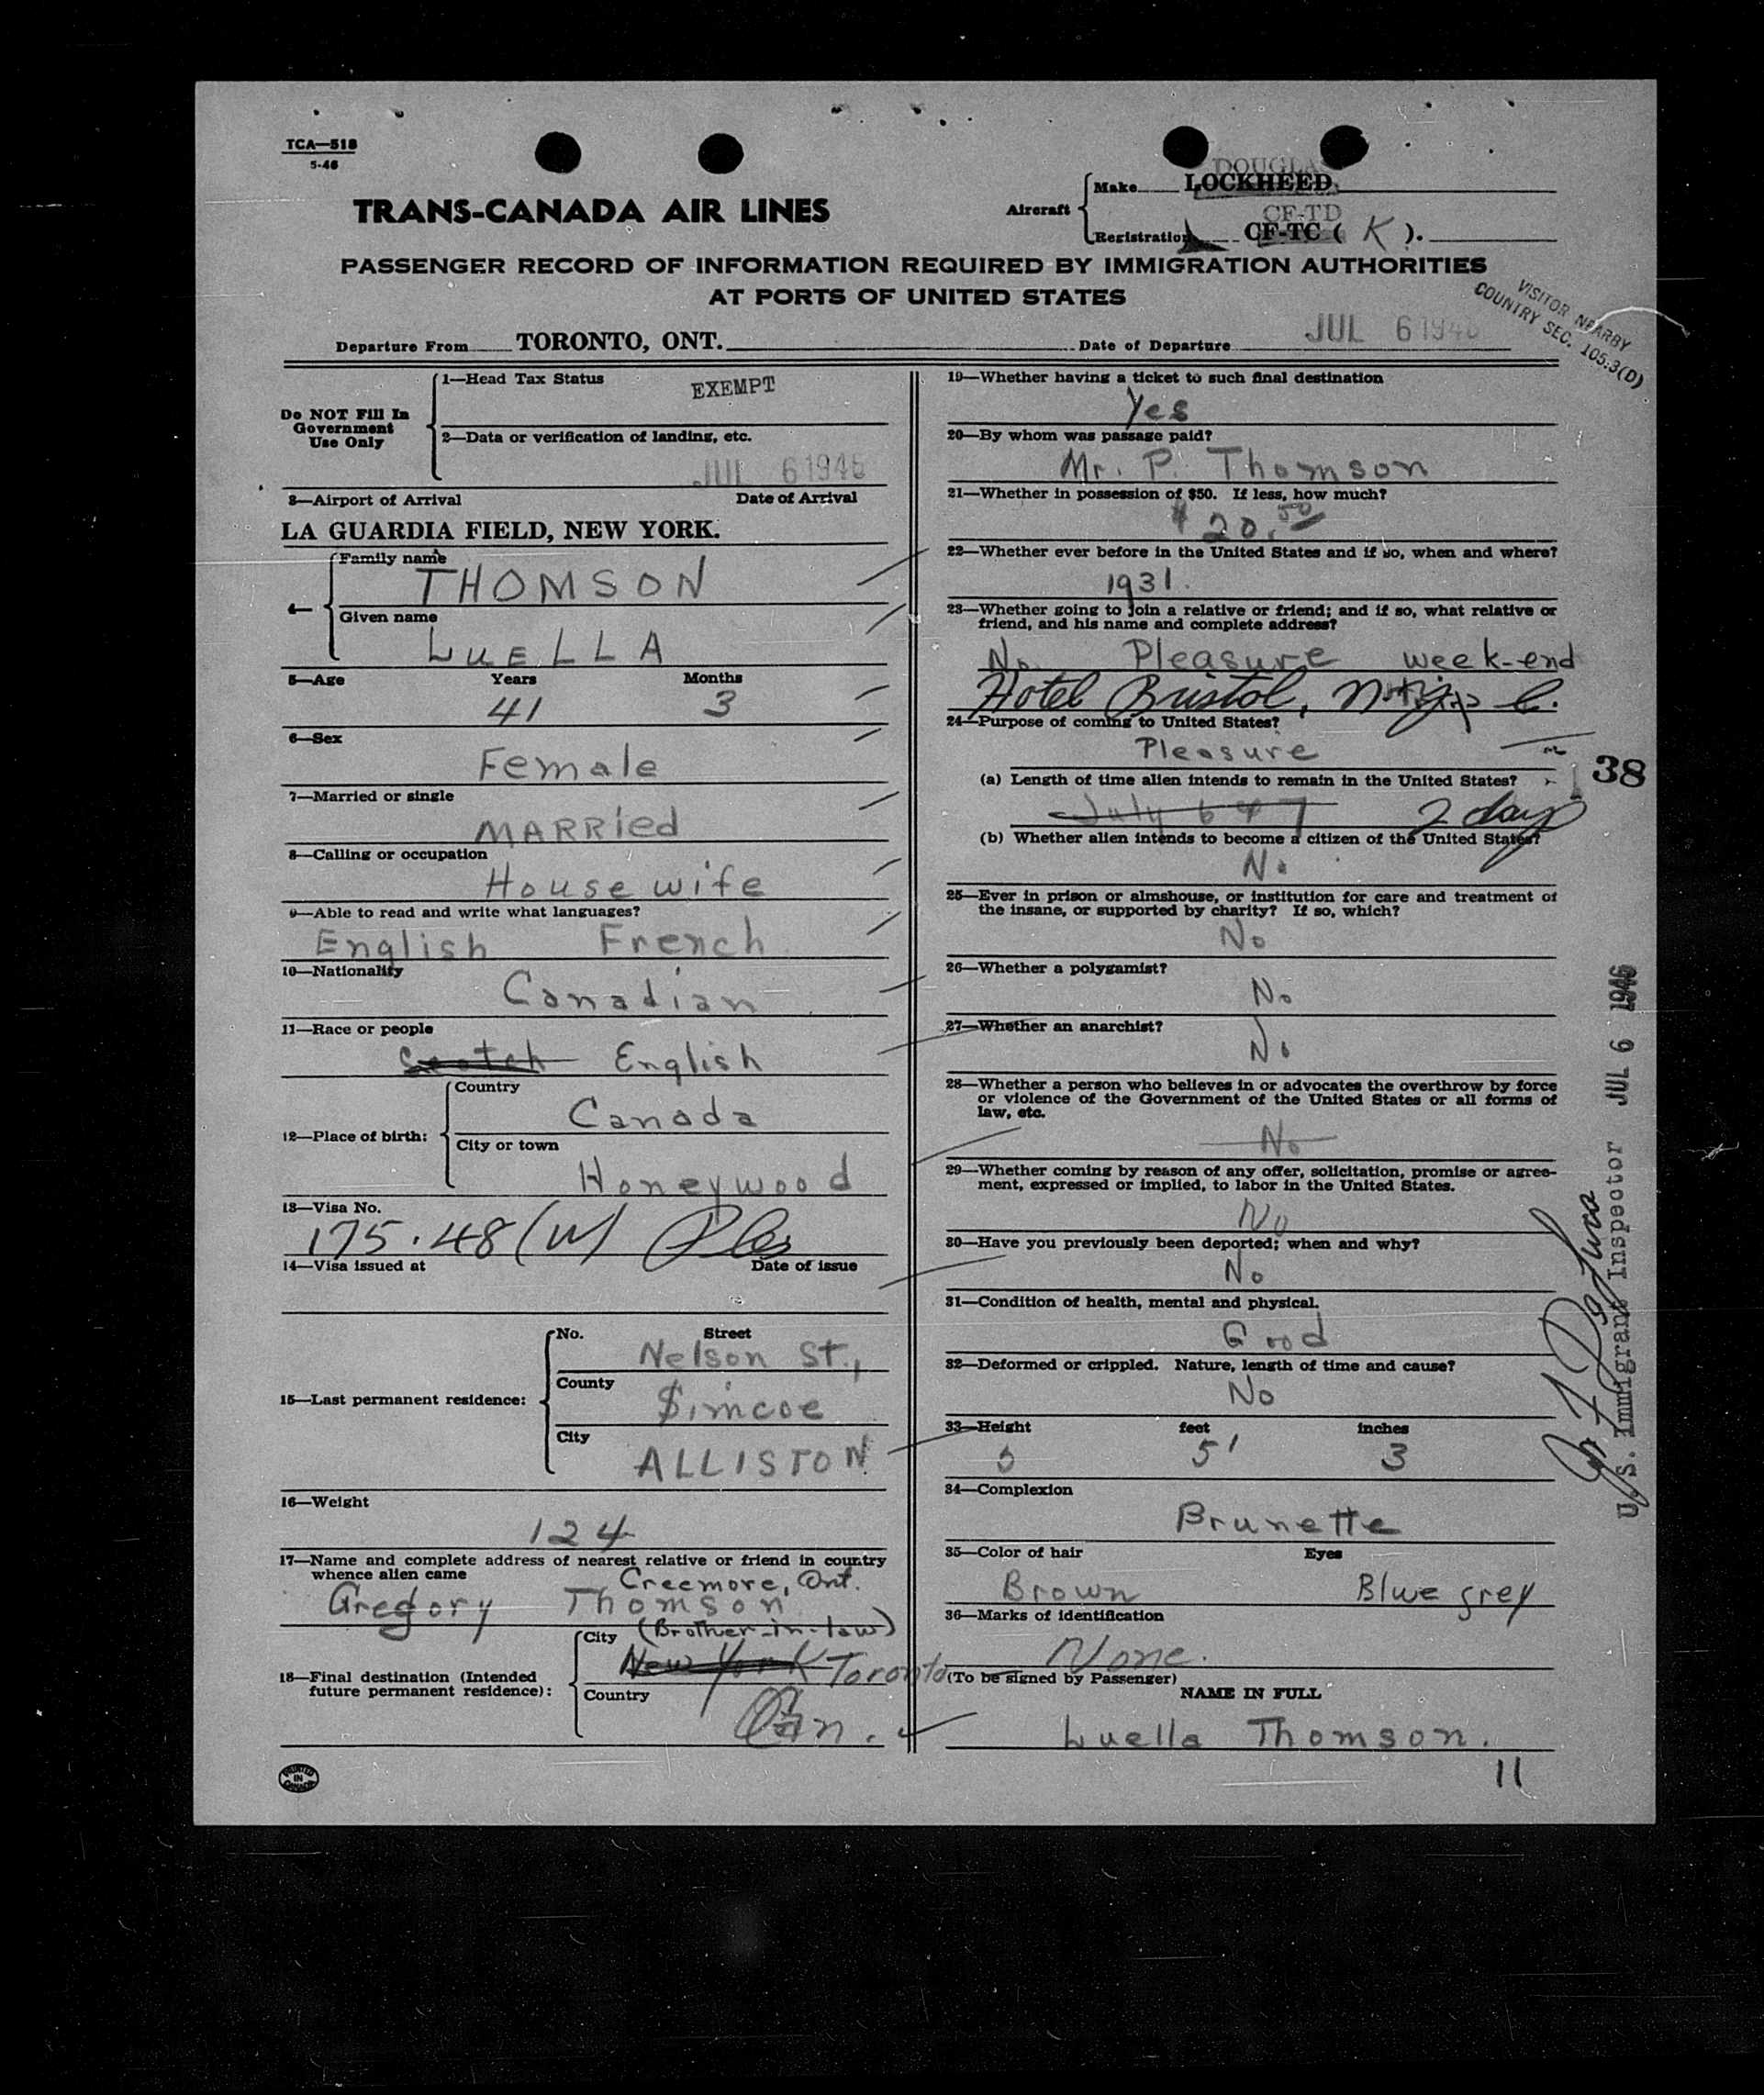 TCA—518
5-46
TRANS-CANADA AIR LINES
Aircraft
Make
DOUGLAS
LOCKHEED
Registration
CF-TD
CF-TC ( K ).
PASSENGER RECORD OF INFORMATION REQUIRED BY IMMIGRATION AUTHORITIES
AT PORTS OF UNITED STATES
VISITOR NEARBY
COUNTRY SEC. 105:3(D)
Departure From TORONTO, ONT.
Date of Departure JUL 6 1946
Do NOT Fill In
Government
Use Only
1—Head Tax Status
EXEMPT
2—Data or verification of landing, etc.
JUL 6 1946
3—Airport of Arrival Date of Arrival
LA GUARDIA FIELD, NEW YORK.
4—
Family name
THOMSON
Given name
LUELLA
5—Age Years Months
41 3
6—Sex
Female
7—Married or single
MARRied
8—Calling or occupation
Housewife
9—Able to read and write what languages?
English French
10—Nationality
Canadian
11—Race or people
Scotch English
12—Place of birth:
Country
Canada
City or town
Honeywood
13—Visa No.
175.48 (W)
14—Visa issued at Date of issue
15—Last permanent residence:
No. Street
Nelson St.,
County
Simcoe
City
ALLISTON
16—Weight
124
17—Name and complete address of nearest relative or friend in country
whence alien came
Creemore, Ont.
Gregory Thomson
(Brother-in-law)
18—Final destination (Intended
future permanent residence):
City
New York Toronto
Country
Can.
PRINTED
IN
CANADA
19—Whether having a ticket to such final destination
Yes
20—By whom was passage paid?
Mr. P. Thomson
21—Whether in possession of $50. If less, how much?
$20.50
22—Whether ever before in the United States and if so, when and where?
1931.
23—Whether going to join a relative or friend; and if so, what relative or
friend, and his name and complete address?
No Pleasure week-end
Hotel Bristol, N.Y.C.
24—Purpose of coming to United States?
Pleasure
(a) Length of time alien intends to remain in the United States?
July 6 & 7 2 days
38
(b) Whether alien intends to become a citizen of the United States?
No
25—Ever in prison or almshouse, or institution for care and treatment of
the insane, or supported by charity? If so, which?
No
26—Whether a polygamist?
No
27—Whether an anarchist?
No
28—Whether a person who believes in or advocates the overthrow by force
or violence of the Government of the United States or all forms of
law, etc.
No
29—Whether coming by reason of any offer, solicitation, promise or agree-
ment, expressed or implied, to labor in the United States.
No
30—Have you previously been deported; when and why?
No
31—Condition of health, mental and physical.
Good
32—Deformed or crippled. Nature, length of time and cause?
No
33—Height feet inches
5 5' 3
34—Complexion
Brunette
35—Color of hair Eyes
Brown Blue grey
36—Marks of identification
None.
(To be signed by Passenger)
NAME IN FULL
Luella Thomson.
11
U.S. Immigrant Inspector JUL 6 1946